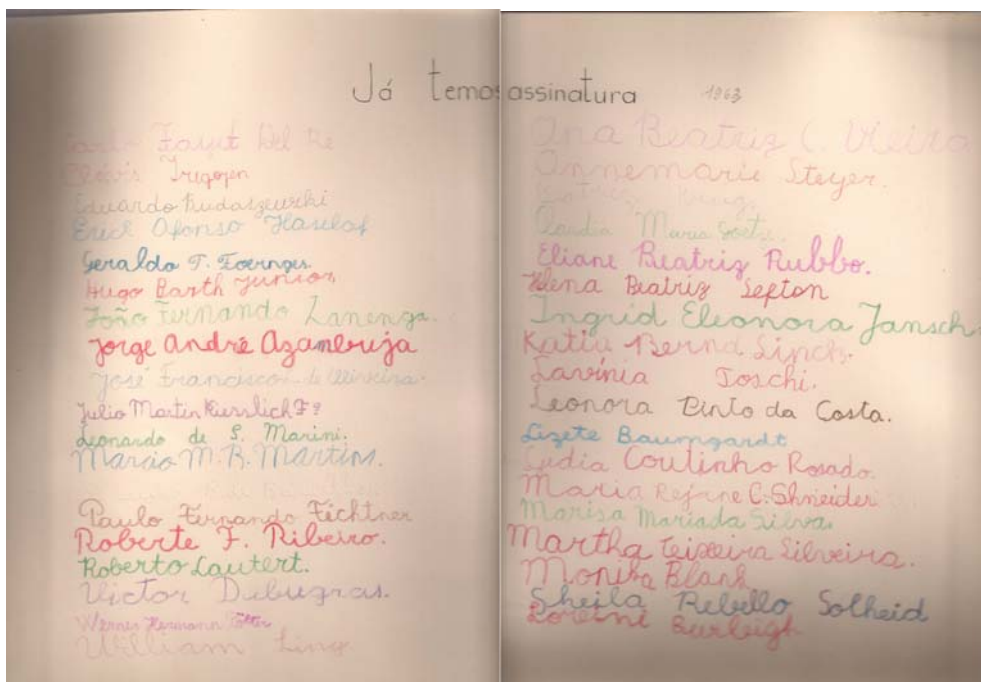 Já temos assinatura 1963
Fayet Del Re
Clovis Irigojen
Eduardo Rudaszewski
Erick Afonso
Geraldo T. Foernges.
Hugo Barth Junior,
João Fernando Zanenga.
Jorge André Azambuja
José Francisco de Oliveira.
Julio Martin Kieslich Fº
Leonardo de S. Marini.
Marcio M. R. Martins.
Paulo Fernando Fichtner
Roberte F. Ribeiro.
Roberto Lautert.
Victor Dubugras.
Werner Hermann Pötter
William Ling
Ana Beatriz C. Vieira
Annemarie Steyer.
Claudia Maria Goetze.
Eliane Beatriz Rubbo.
Helena Beatriz Septon
Ingrid Eleonora Jansch
Katia Bernd Linck.
Lavínia Toschi.
Leonora Pinto da Costa.
Lizete Baumgardt
Lydia Coutinho Rosado.
Maria Rejane C. Shneider
Marisa Maria da Silva.
Martha Teixeira Silveira.
Monika Blank
Sheila Rebello Solheid
Loreini Burleigh